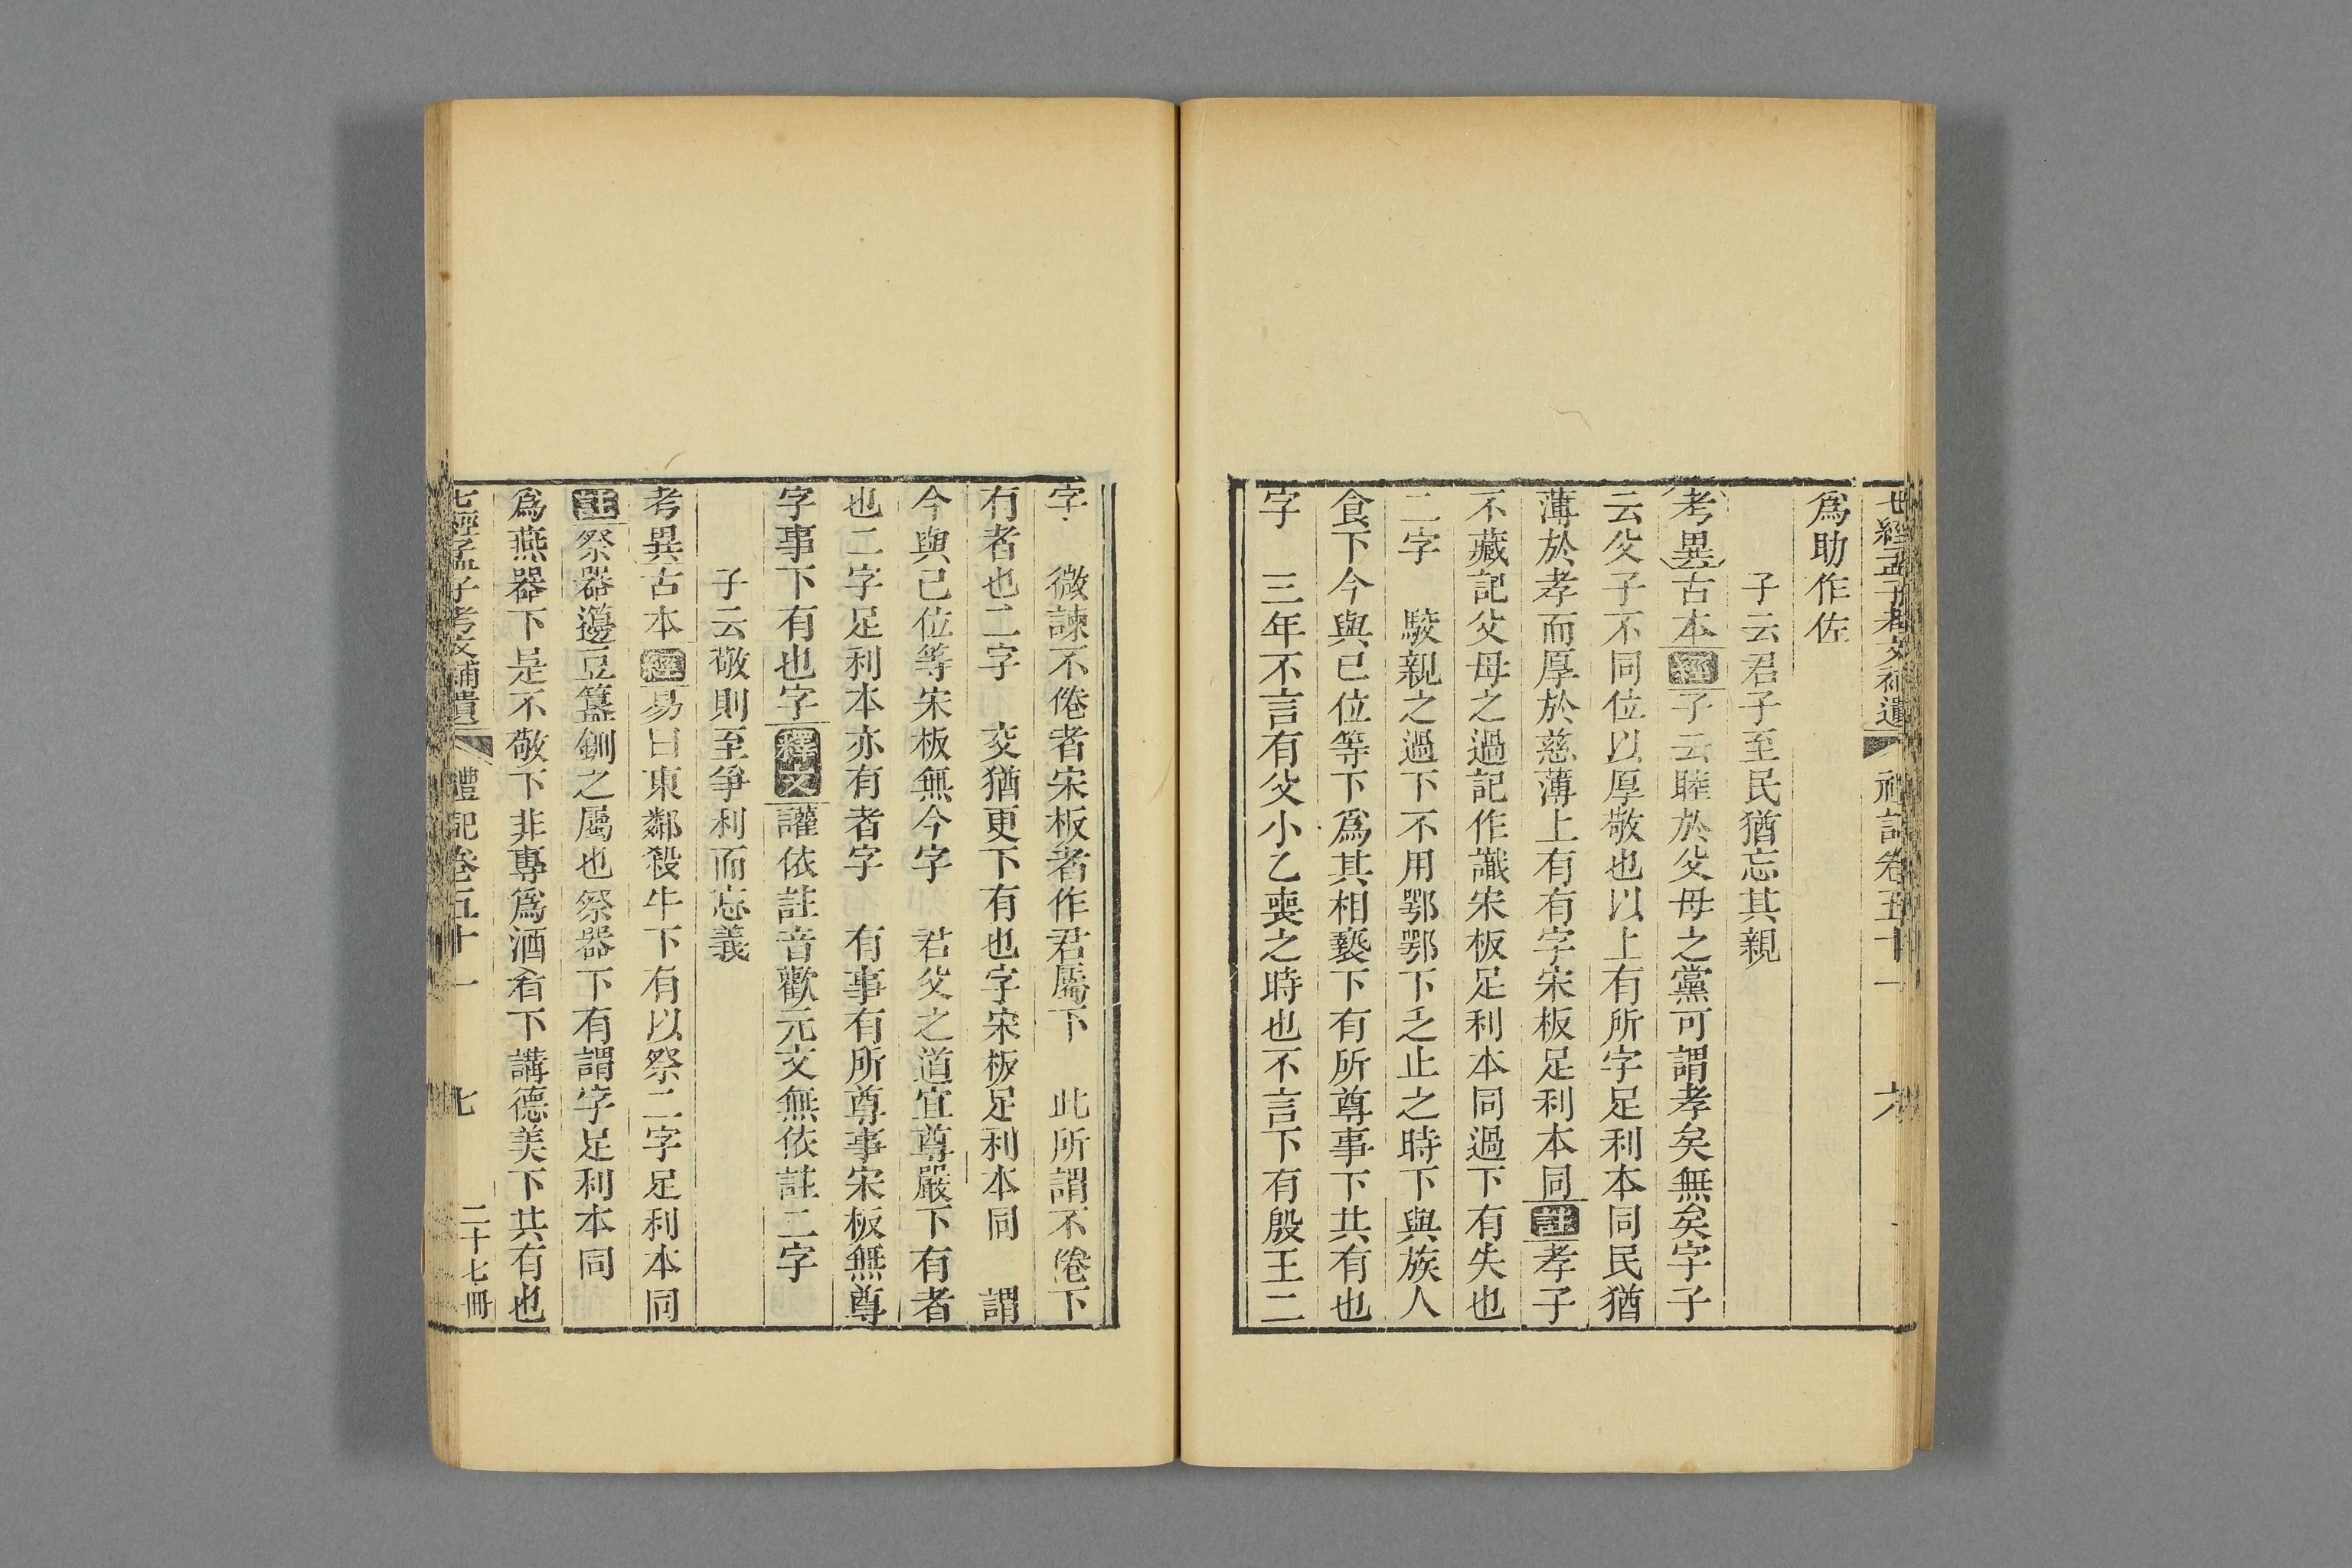 七經孟子考文補遺 禮記卷五十一 六
爲助作佐
子云君子至民猶忘其親
考異古本經子云睦於父母之黨可謂孝矣無矣字子
云父子不同位以厚敬也以上有所字足利本同民猶
薄於孝而厚於慈薄上有有字宋板足利本同註孝子
不藏記父母之過記作識宋板足利本同過下有失也
二字 駮親之過下不用鄂鄂下之止之時下與族人
食下今與已位等下爲其相褻下有所尊事下共有也
字 三年不言有父小乙喪之時也不言下有殷王二
字 微諫不倦者宋板者作君屬下 此所謂不倦下
有者也二字 交猶更下有也字宋板足利本同 謂
今與己位等宋板無今字 君父之道宜尊嚴下有者
也二字足利本亦有者字 有事有所尊事宋板無尊
字事下有也字釋文讙依註音歡元文無依註二字
子云敬則至爭利而忘義
考異古本經易曰東鄰殺牛下有以祭二字足利本同
註祭器籩豆簋鉶之屬也祭器下有謂字足利本同
爲燕器下是不敬下非專爲酒肴下講德美下共有也
七經孟子考文補遺 禮記卷五十一 七 二十七冊